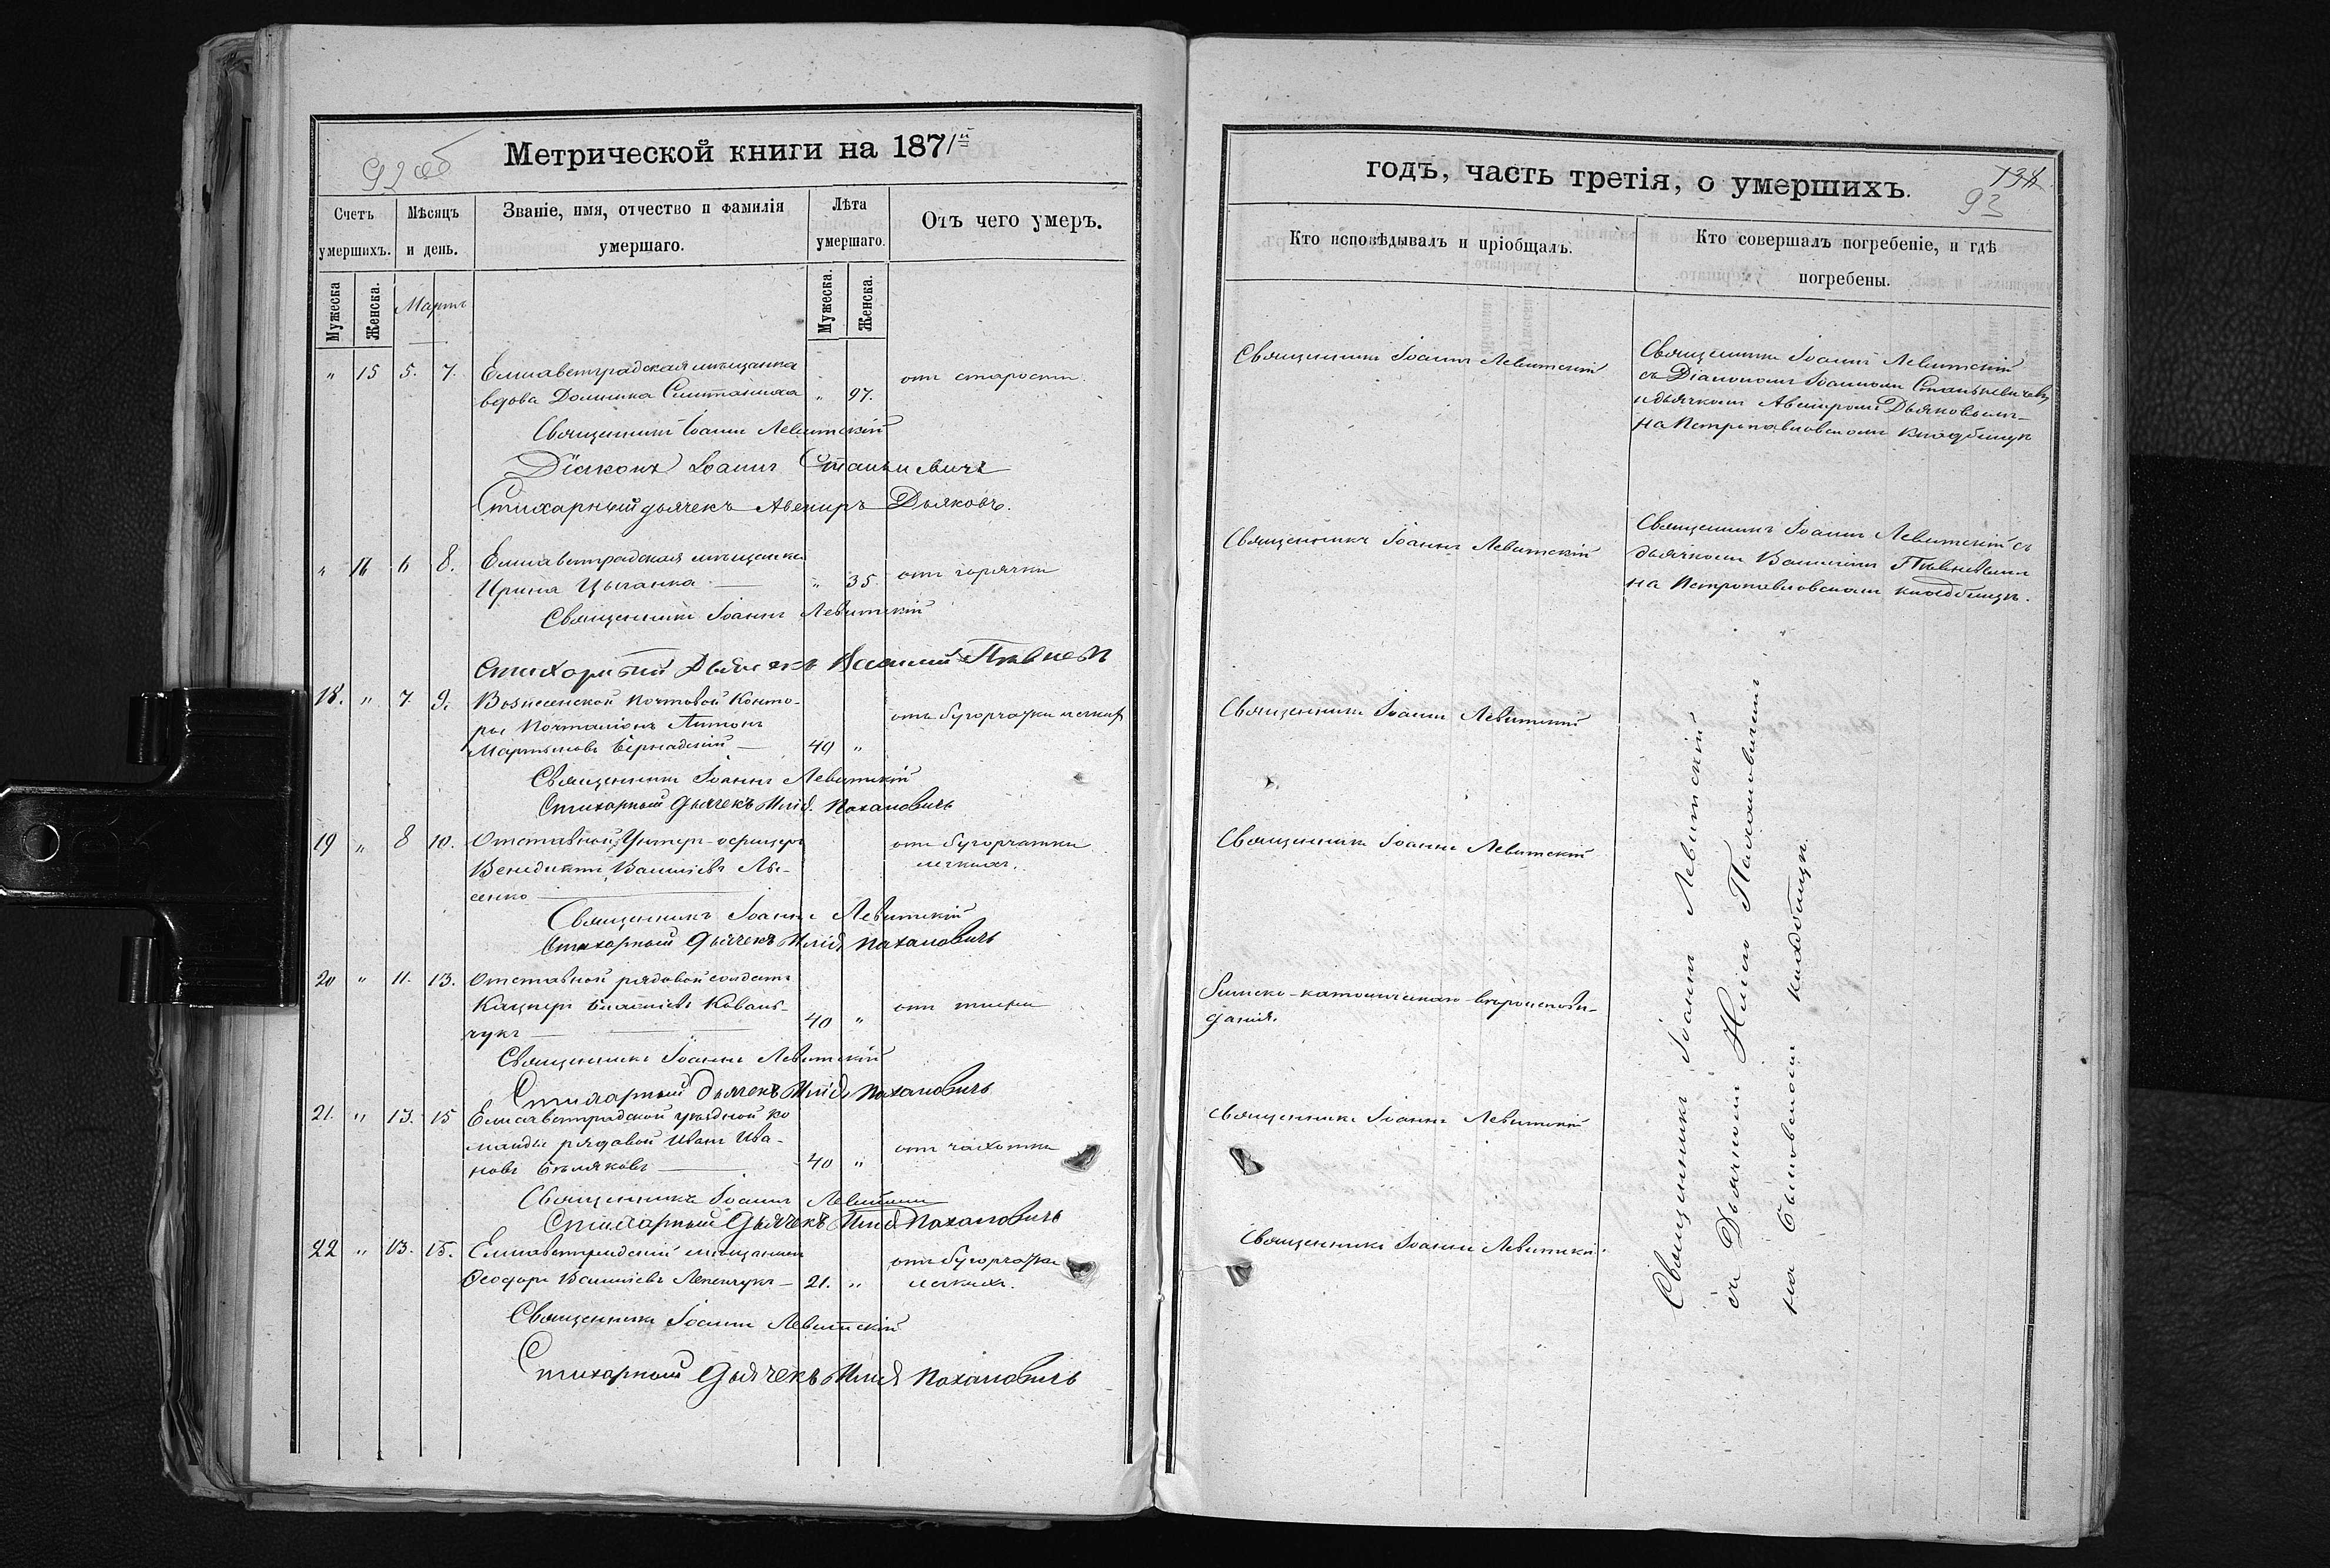 92 об
Метрической книги на 1871й
Счетъ умершихъ.
Мѣсяцъ и день.
Званіе, имя, отчество и фамилія умершаго.
Лѣта умершаго.
Отъ чего умеръ.
Мужеска
Женска.
Мартъ
Мужеска.
Женска.
" 15 5. 7. Елисаветградская мѣщанка
вдова Домника " 97. отъ старости.
Священникъ Іоаннъ Левитскій
Діаконъ Іоаннъ Станкевичъ
Стихарный дьячекъ Авениръ Дьяковъ.
" 16 6 8. Елисаветградская мѣщанка
Ирина Цыганка — " 35. отъ горячки
Священникъ Іоаннъ Левитскій
Стихарный Дьячекъ Василій Пѣвневъ
18. " 7. 9. Вознесенской почтовой Конто-
ры Почталіонъ Антонъ отъ бугорчатки легкихъ
Мартыновъ Бернадскій — 49 "
Священникъ Іоаннъ Левитскій
Стихарный Дьячекъ Илія Пахановичъ
19 " 8 10. Отставной Унтеръ-офицеръ отъ бугорчатки
Венедиктъ Васильевъ Лы- легкихъ.
сенко —
Священникъ Іоаннъ Левитскій
Стихарный Дьячекъ Илія Пахановичъ
20 " 11. 13. Отставной рядовой солдатъ
Кацперъ Коваль- отъ
чукъ — 40 "
Священникъ Іоаннъ Левитскій
Стихарный Дьячекъ Илія Пахановичъ
21. " 13. 15 Елисаветградской уѣздной ко
манды рядовой Иванъ Ива- отъ чахотки
новъ Бѣляковъ — 40 "
Священникъ Іоаннъ Левитскій
Стихарный Дьячекъ Илія Пахановичъ
22 " 13. 15. Елисаветградскій мѣщанинъ отъ бугорчатки
Ѳеодоръ Васильевъ Лепенчукъ — 21. " легкихъ.
Священникъ Іоаннъ Левитскій
Стихарный Дьячекъ Илія Пахановичъ
годъ, часть третія, о умершихъ.
93
Кто исповѣдывалъ и пріобщалъ.
Кто совершалъ погребеніе, и гдѣ погребены.
Священникъ Іоаннъ Левитскій
Священникъ Іоаннъ Левитскій
съ Діакономъ Іоанномъ Станкевичемъ
и дьячкомъ Авениромъ Дьяковымъ—
на Петропавловскомъ кладбищѣ
Священникъ Іоаннъ Левитскій
Священникъ Іоаннъ Левитскій съ
дьячкомъ Василіемъ Пѣвневымъ
на Петропавловскомъ кладбищѣ.
Священникъ Іоаннъ Левитскій
Священникъ Іоаннъ Левитскій
Римско-католическаго вѣроисповѣ-
данія.
Священникъ Іоаннъ Левитскій
Священникъ Іоаннъ Левитскій.
Священникъ Іоаннъ Левитскій
съ Дьячкомъ Иліею Пахановичемъ
на кладбищѣ.